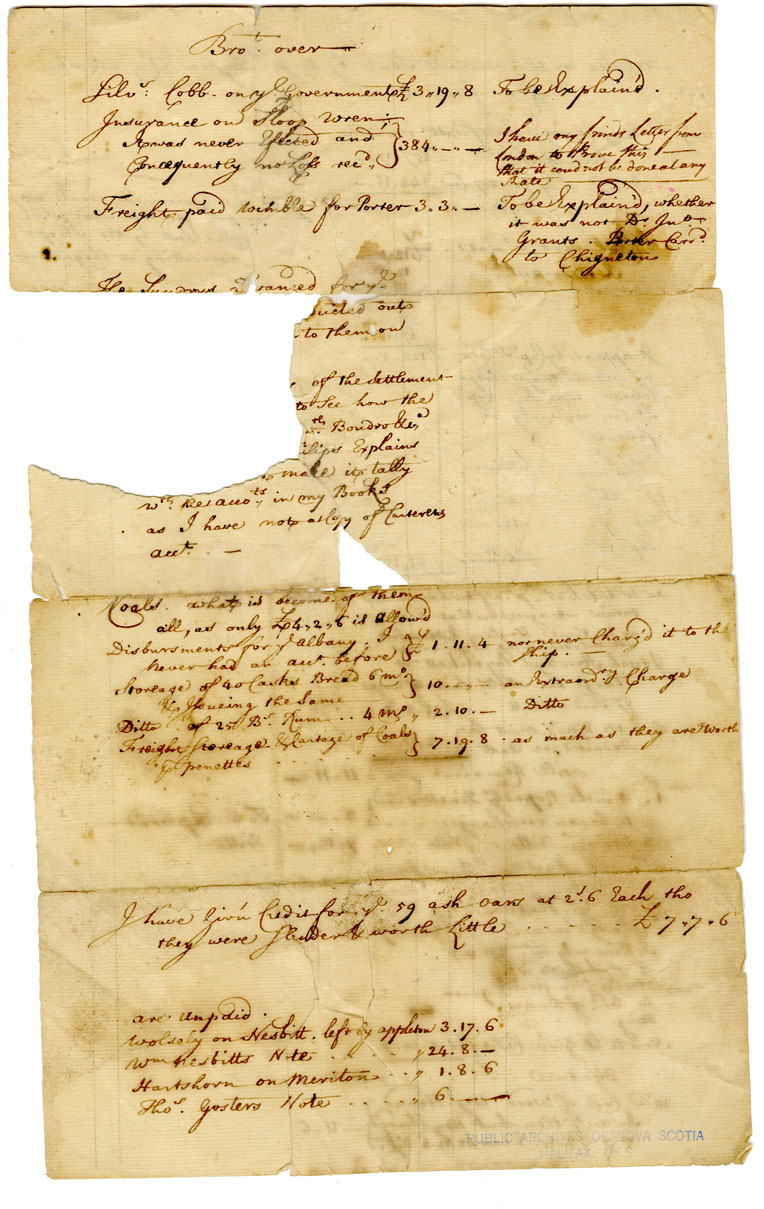 Bro.t over
Silv.s Cobb on y.e Government £3 ,, 19 ,, 8 To be Explain'd.
Insurance on Sloop Wren
it was never Efected and
Consequently no Loss rec.d } 384 ,, — ,, —
I have my frinds Letter from
London to Prove this
that it coud not be done at any
Rate
Freight paid Wimble for Porter 3 . 3 . — To be Explain'd, whether
it was not D.r Jn.o
Grants. Porter Carr.d
to Chignecton
The Sundrys advanced for y.e
ducted out
to them on
of the Settlement
to See how the
Boudro &c.a
ilips Explains
make it tally
w.th the acco.ts in my Books
as I have not a Copy of Carterets
acc.t . —
Coals . what is become of them
all, as only £4 ,, 2 ,, 6 is allow'd
Disbursments for y.e Albany . I
Never had an acc.t before } £ 1 . 11 . 4 nor never Charg'd it to the
Ship . —
Storeage of 40 Casks Bread 6 m.o
& Issueing the Same } 10 . — ,, — an Extraord.y Charge
Ditto of 25 B.s Rum . . 4 m.o ,, 2 . 10 . — Ditto
Freight Storeage & Cartage of Coals
p penettes } 7 . 19 . 8 . as much as they are Worth
I have Giv'n Credit for y.e 59 ash oars at 2s. 6 Each tho
they were Slender & worth Little - - - - - £ 7 . 7 . 6
are unpaid .
Wolsely on Nesbitt . left by appleton 3 . 17 . 6
W.m Nesbitts Note . . . . ,, 24 . 8 . —
Hartshorn on Meriton . . ,, 1 . 8 . 6
Tho.s Gosters Note . . . . ,, 6 . — . —
PUBLIC ARCHIVES OF NOVA SCOTIA
HALIFAX, N. S.